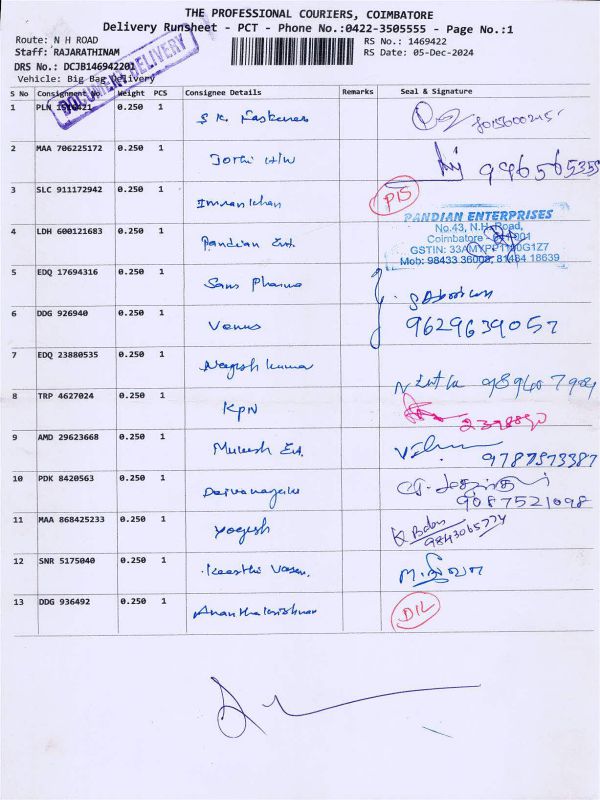 THE PROFESSIONAL COURIERS, COIMBATORE
Delivery Runsheet - PCT - Phone No.:0422-3505555 - Page No.:1
Route: N H ROAD
RS No.: 1469422
Staff: RAJARATHINAM
RS Date: 05-Dec-2024
DRS No.: DCJB146942201
Vehicle: Big Bag Delivery
DOCUMENT DELIVERY
S No Consignment No. Weight PCS Consignee Details Remarks Seal & Signature
1 PLN 0.250 1 S.K. Baskaran
2 MAA 706225172 0.250 1 Jothi H/W
3 SLC 911172942 0.250 1 Imran Khan
PANDIAN ENTERPRISES
No.43, N.H. Road,
Coimbatore
GSTIN:
Mob: 98433 36008, 81484 18639
4 LDH 600121683 0.250 1 Pandian Ent.
5 EDQ 17694316 0.250 1 Sans Pharma
6 DDG 926940 0.250 1 Venus 9629639057
7 EDQ 23880535 0.250 1 Nagesh Kumar
8 TRP 4627024 0.250 1 KPN
9 AMD 29623668 0.250 1 Mukesh Ent. 9787573387
10 PDK 8420563 0.250 1 9087521098
11 MAA 868425233 0.250 1 Yogesh K Babu
12 SNR 5175040 0.250 1 Keerthi Vasan.
13 DDG 936492 0.250 1 Ananthakrishnan D/L